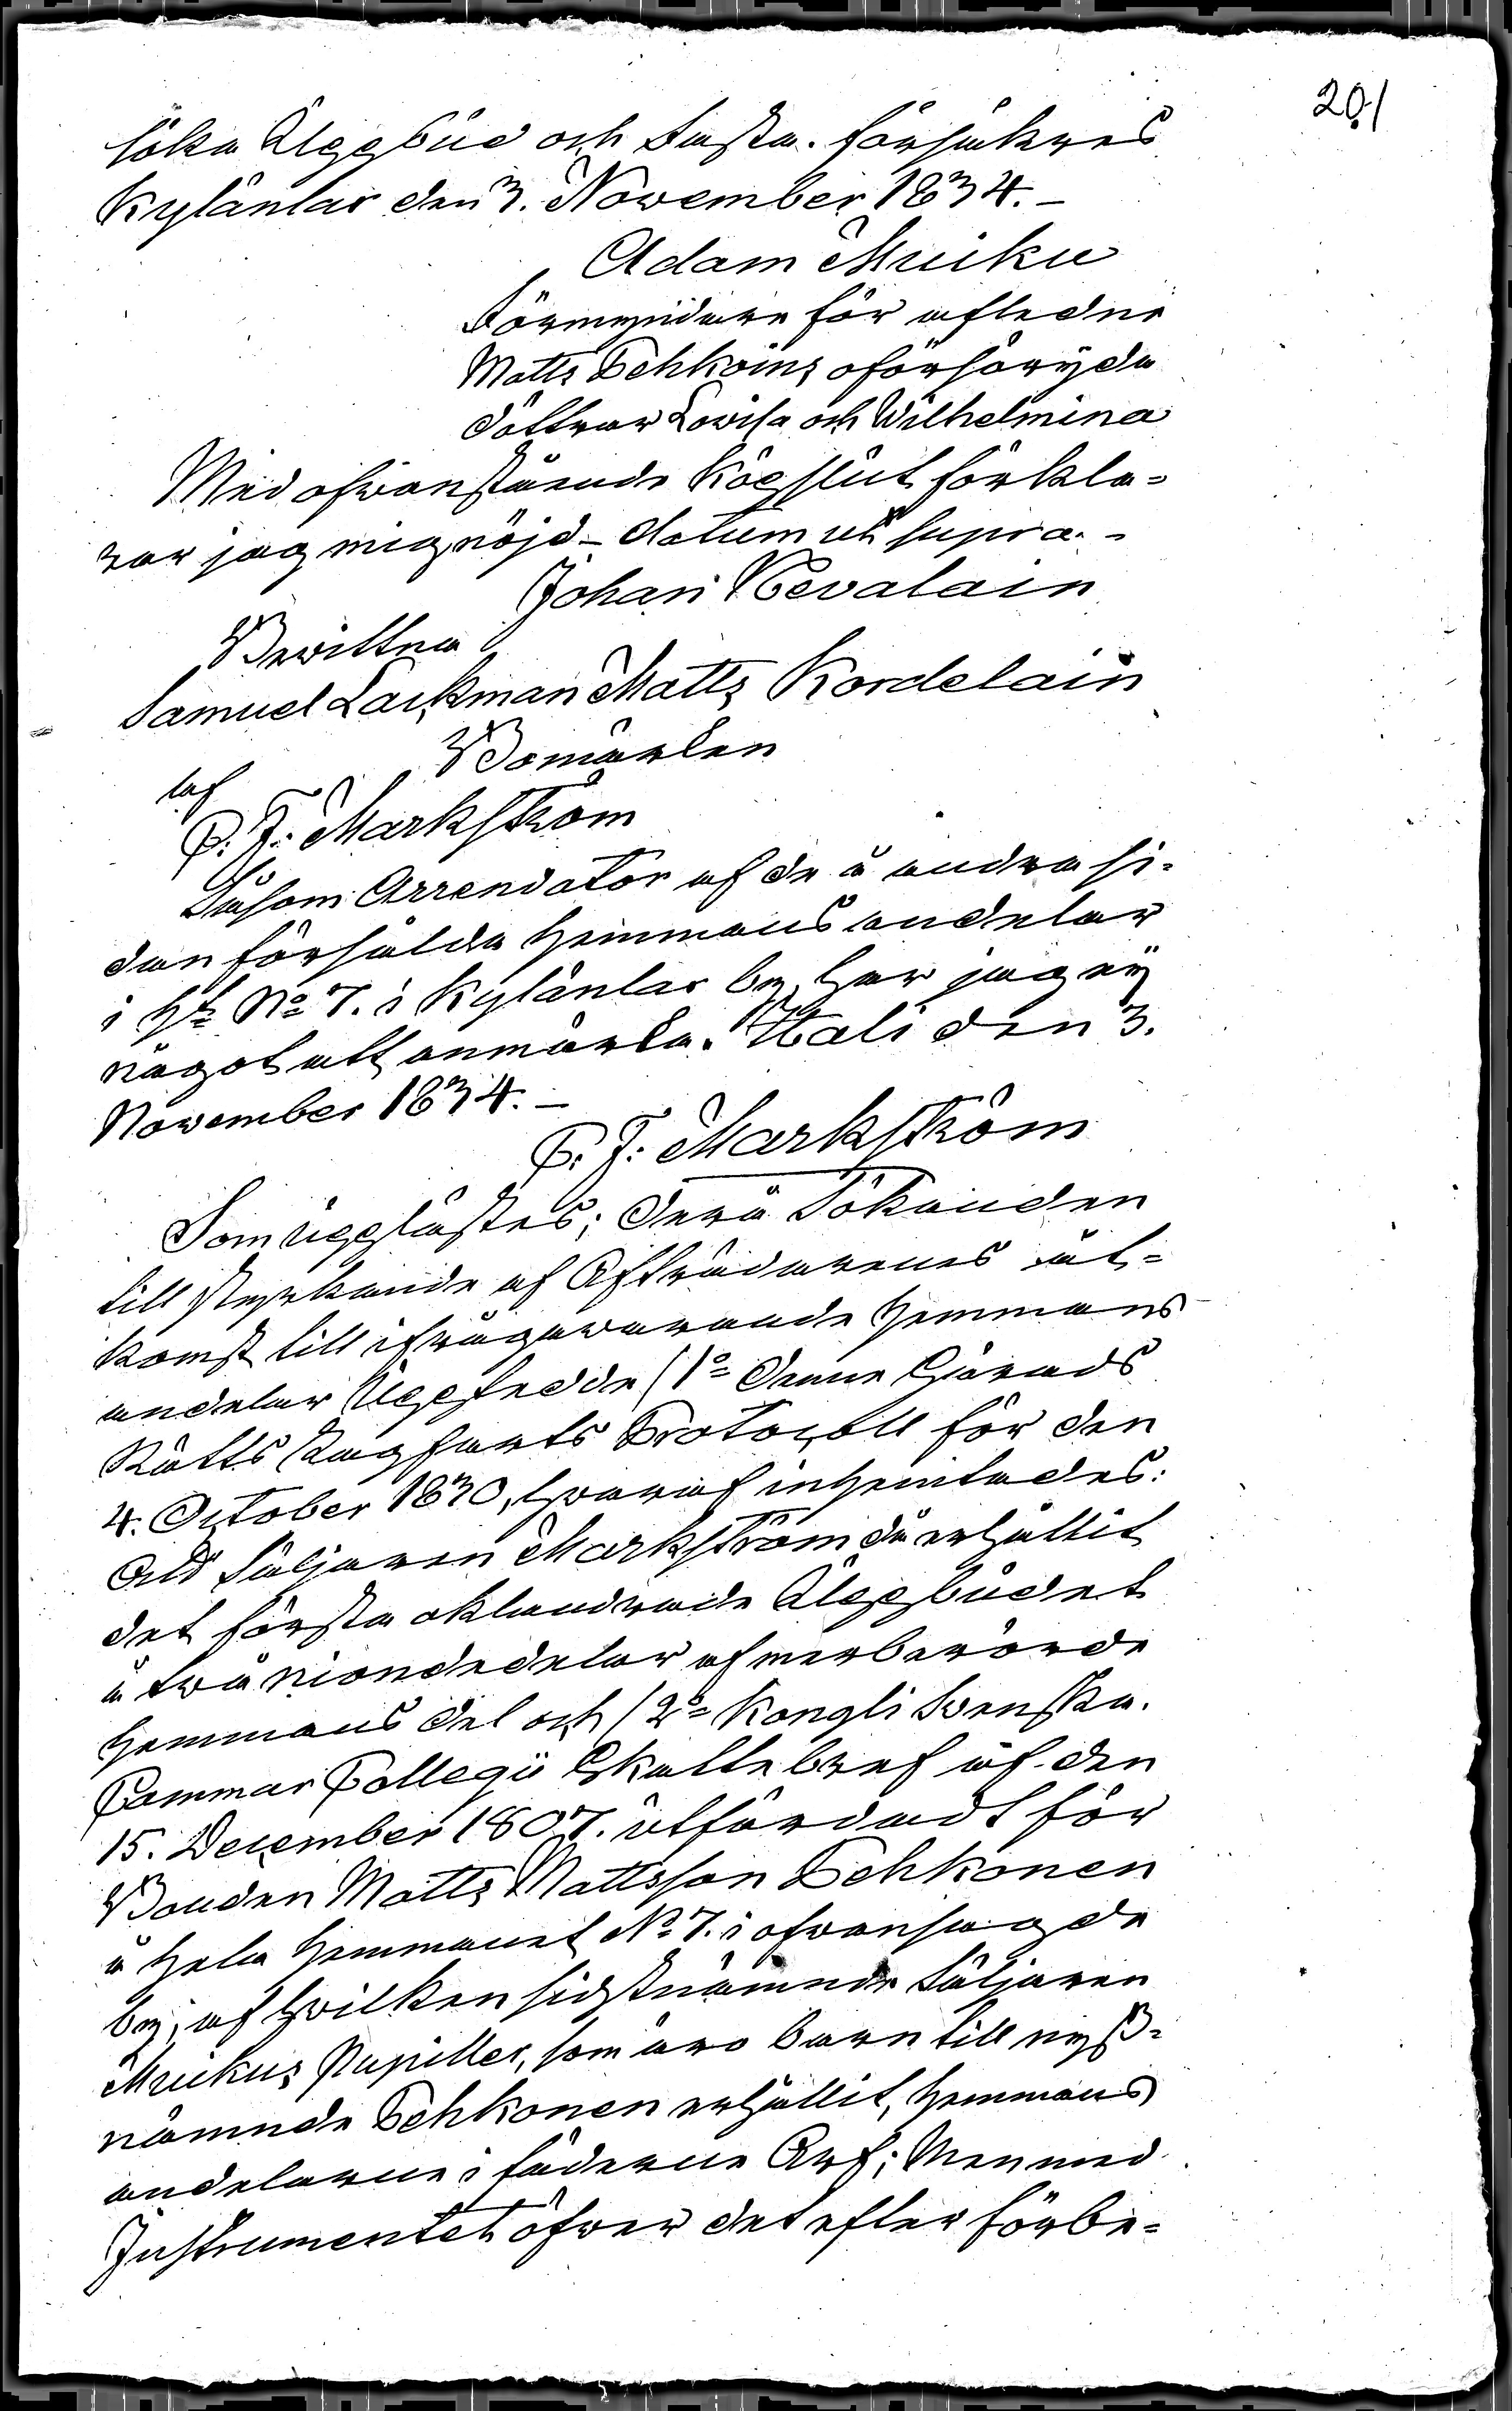 201
söka Uppbud och Fasta. försäkras
Kylänlax den 3. November 1834.–
Adam Muiku
Förmyndare för afledne
Matts Pehkoins oförsörjda
döttrar Lovisa och Wilhelmina
Med ofwanstående köpslut förkla=
rar jag mig nöjd – datum ut supra. –
Johan Kevalain
Bewittna
Samuel Lackman Matts Kordelain
Bomärken
P. F: Markström
Såsom Arrendator af de å andra si=
dan försålda hemmans andelar
i Ht No 7. i Kylänlax by har jag ej
något att anmärka. Itali den 3.
November 1834. –
P. F: Markström
Som upplästes; derå Sökanden
till styrkande af Afträdarenes åt=
komst till ifrågawarande hemmans
andelar Upptedde (1o= denne Härads
Rätts Lagfarts Protocoll för den
4. October 1830, hwaraf inhemtades:
Att Säljaren Markström då erhållit
det första oklandrade Uppbudet
å twå niondedelar af merberörde
hemmans del och (2o= Kongli Swenska.
Cammar Collegii Skatte bref af den
15. December 1807. utfärdadt för
Bonden Matts Mattsson Pehkonen
å hela hemmanet No 7. i ofwansagde
by, af hwilken sidstnämnde Säljaren
Muikus Pupiller, som äro barn till nyss=
nämnde Pehkonen erhållit, hemmans
andelarne i fäderne Arf; Men med
Instrumentet öfwer det efter förbe=